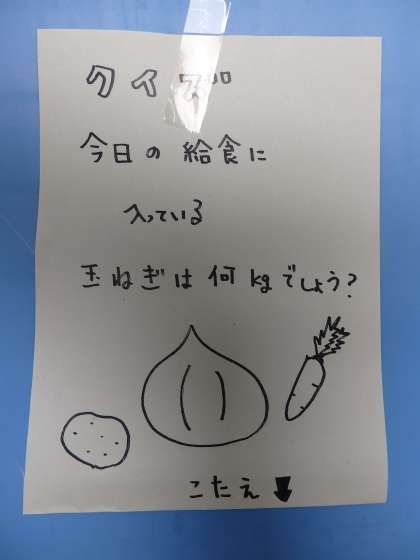 クイズ
今日の給食に
入っている
玉ねぎは何kgでしょう?
こたえ⬇